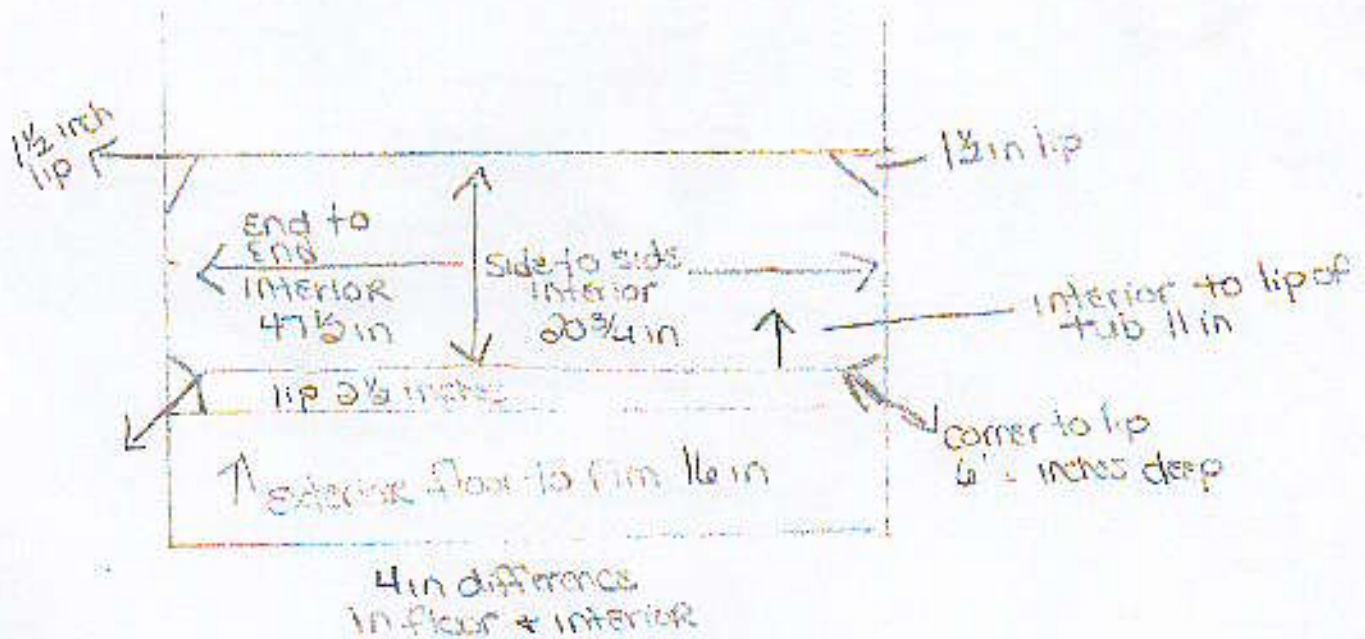 1½ inch
lip
1½ in lip
End to
End
interior
47½ in
side to side
interior
20¾ in
interior to lip of
tub 11 in
lip 2½ inches
corner to lip
inches deep
exterior floor to rim 16 in
4 in difference
in floor + interior